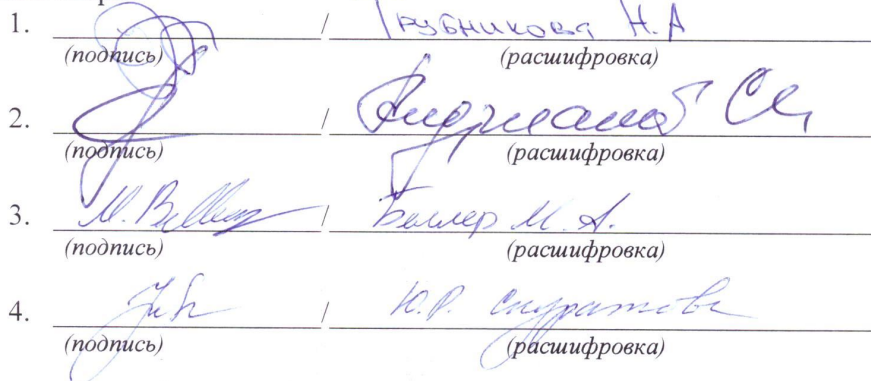 1. / Трубникова Н.А
(подпись) (расшифровка)
2. / Андрианов
(подпись) (расшифровка)
3. / М. А.
(подпись) (расшифровка)
4. / Ю.Р. Скуратова
(подпись) (расшифровка)